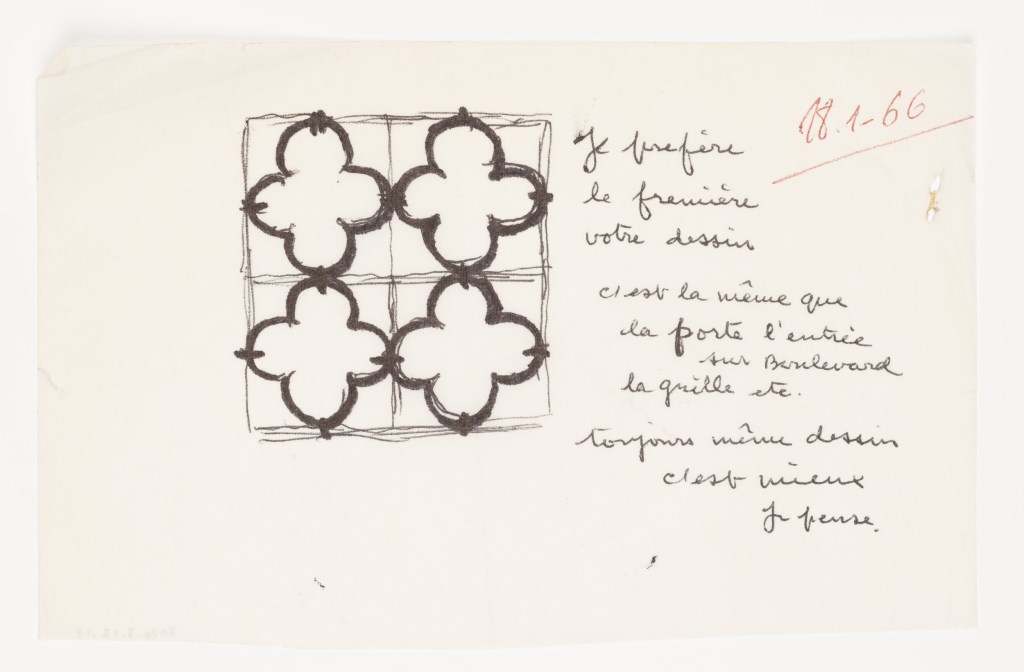 18.1-66
Je prefère
le première
votre dessin
c'est la même que
la porte l'entrée
sur Boulevard
la grille etc.
toujours même dessin
c'est mieux
Je pense.